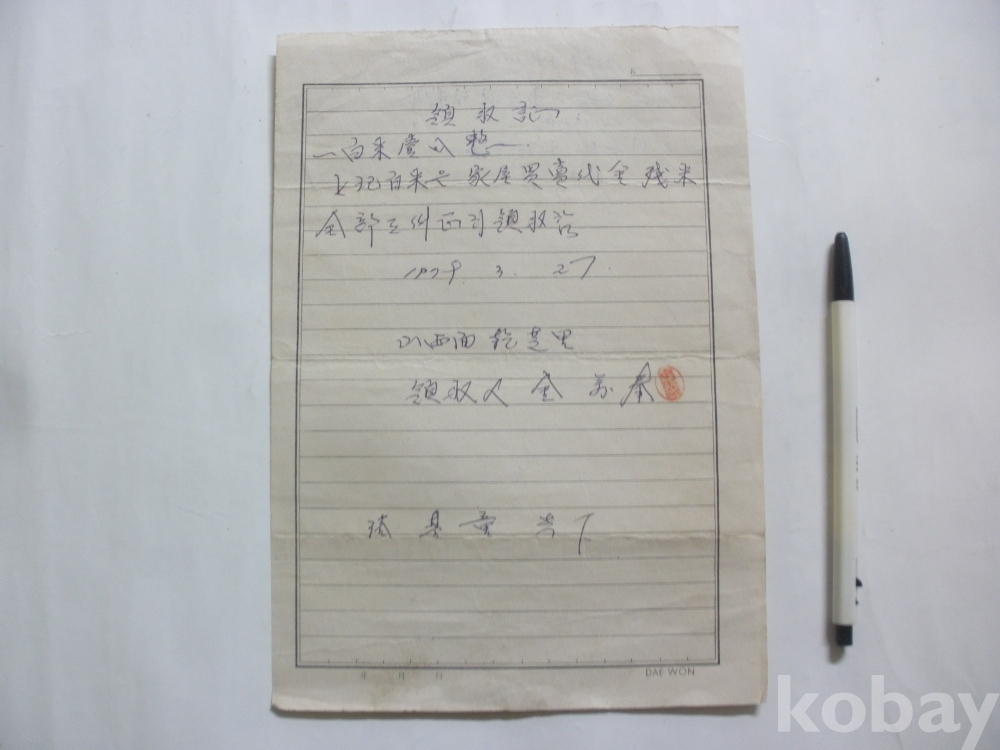 領收証
一白米壹叺整一
上記白米는 家屋買賣代金 殘米
全部 領收함
1979. 3. 27.
西面 乾芝里
領收人 金 奉
基 下
年 月 日
DAE WON
kobay